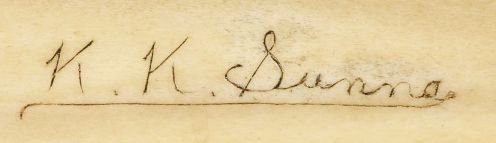 K. K. Sunna